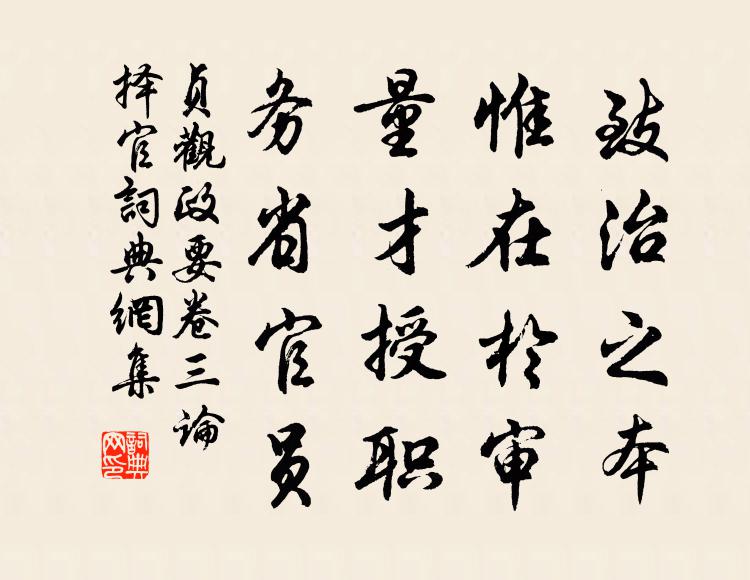 致治之本
惟在於审
量才授职
务省官员
貞觀政要卷三論
择官詞典網集
詞典
网印